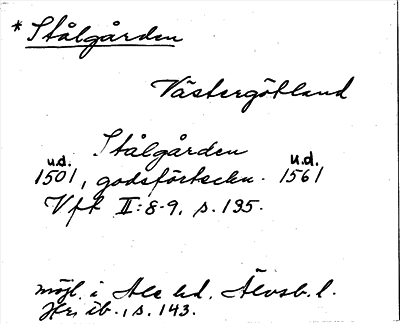 * Stålgården
Västergötland
Stålgården
u.d. u.d.
1501, godsförteckn. 1561
Vft II:8-9, s. 195.
möjl. i Ale hd. Älvsb. l.
ib., s. 143.